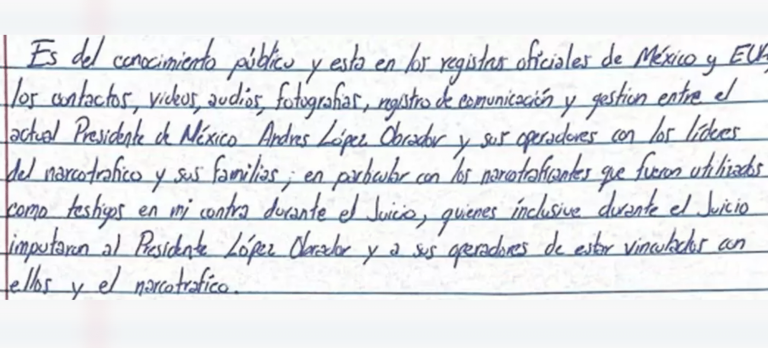 Es del conocimiento público y esta en los registros oficiales de México y EUA,
los contactos, videos, audios, fotografias, registro de comunicación y gestion entre el
actual Presidente de México Andres López Obrador y sus operadores con los líderes
del narcotrafico y sus familias; en particular con los narcotraficantes que fueron utilizados
como testigos en mi contra durante el Juicio, quienes inclusive durante el Juicio
imputaron al Presidente López Obrador y a sus operadores de estar vinculados con
ellos y el narcotrafico.